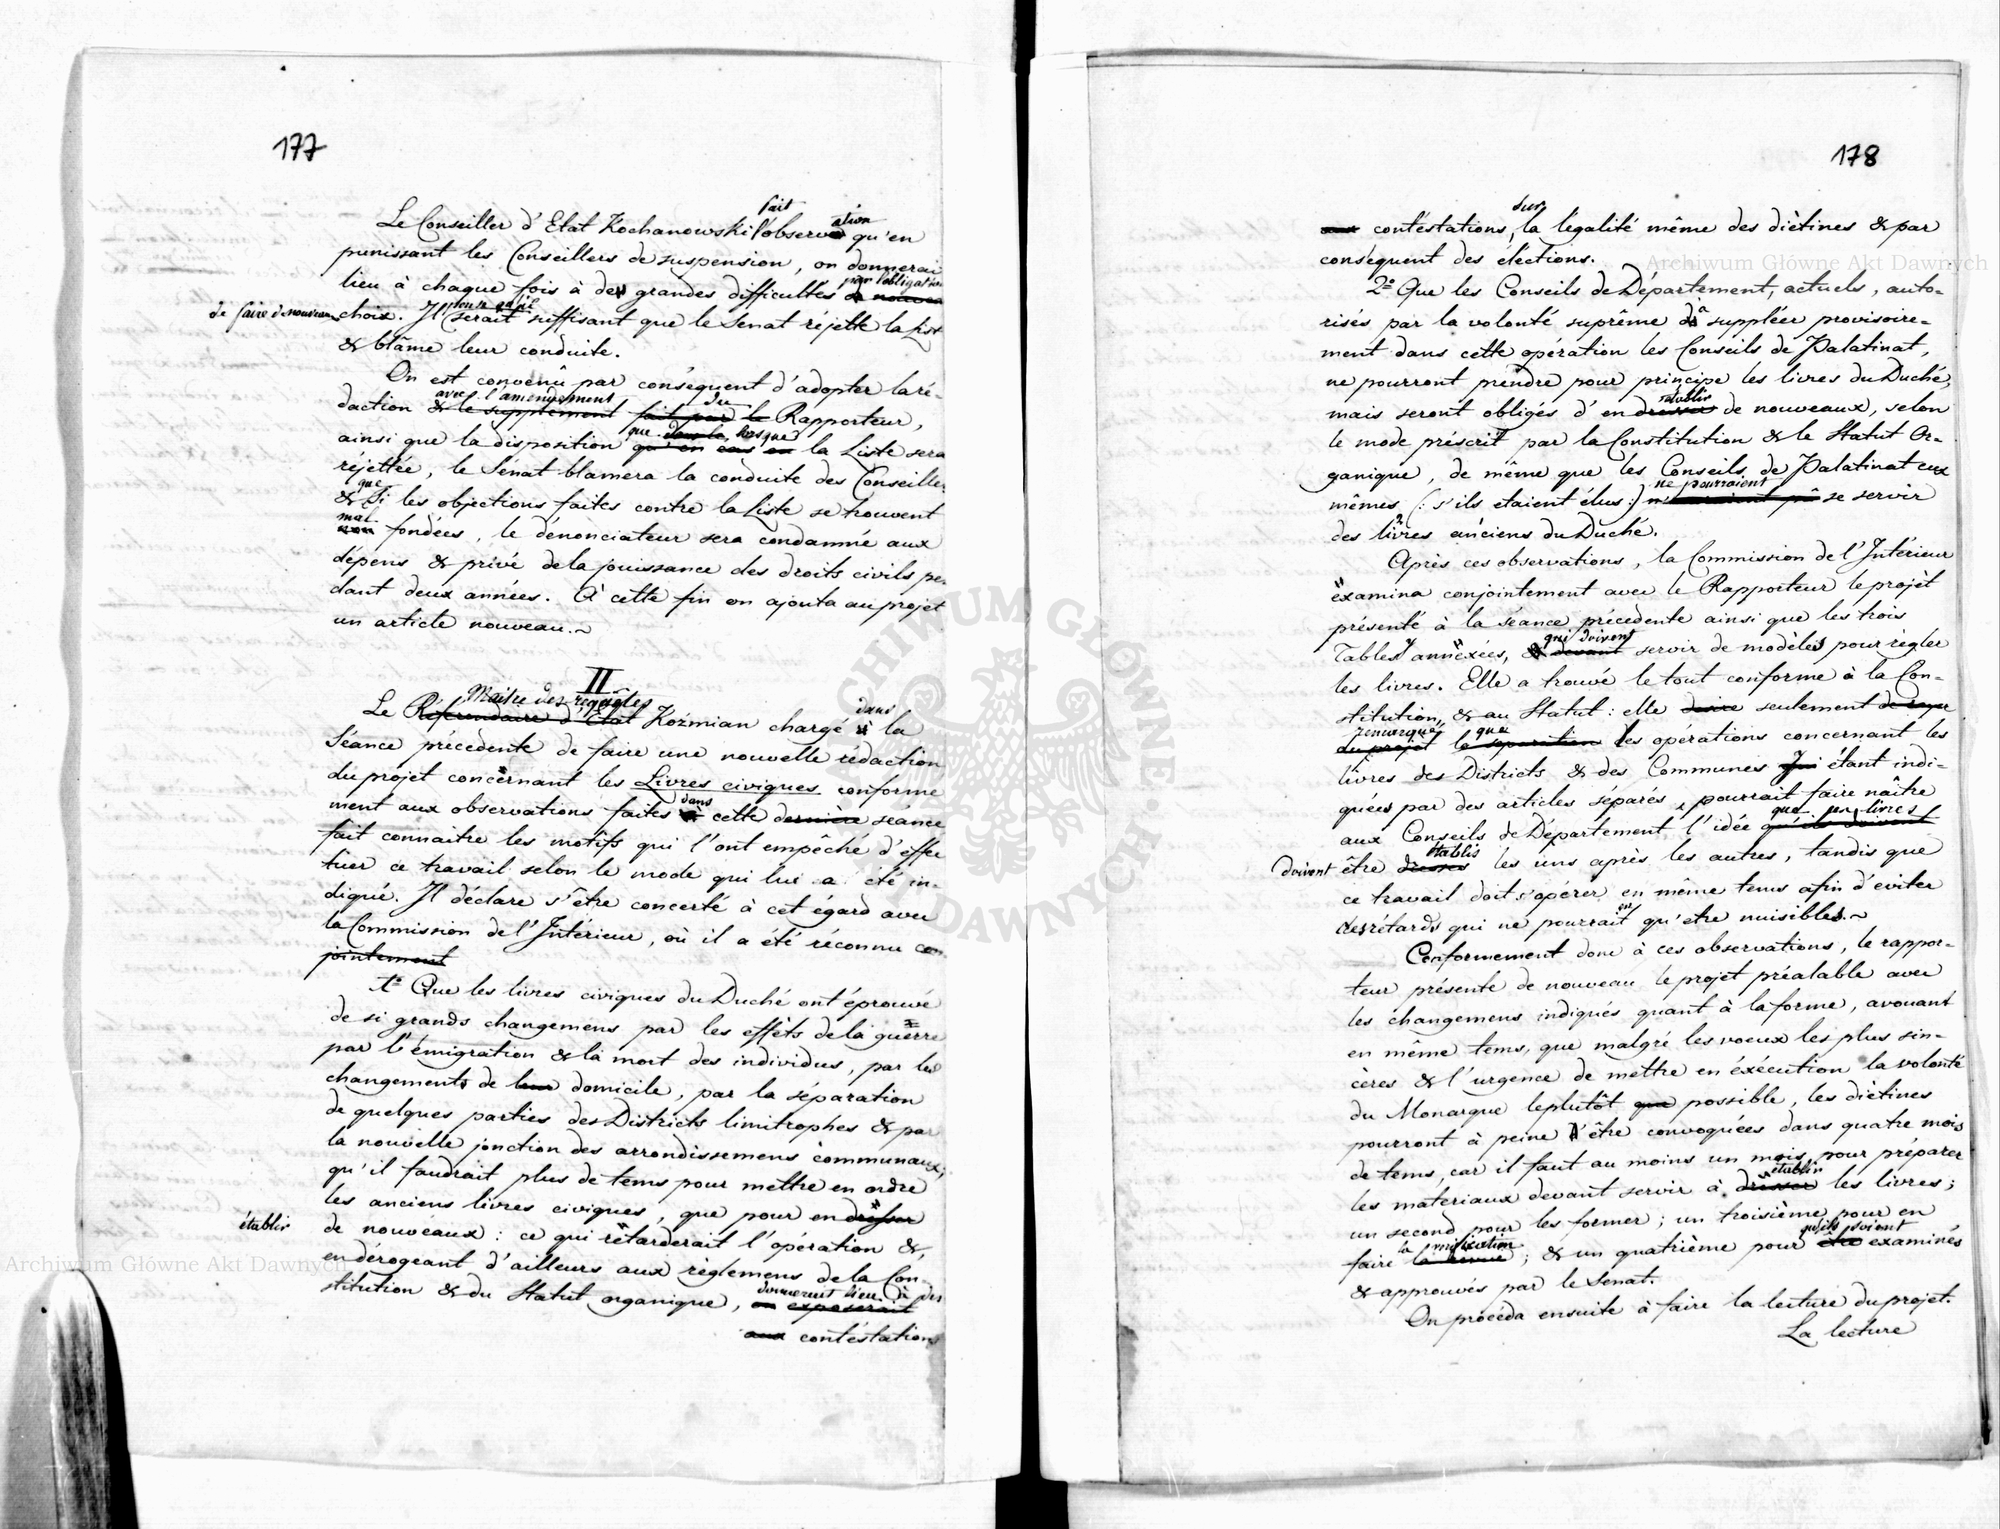 177
Le Conseiller d'Etat Kochanowski fait l'observation qu'en
punissant les Conseillers de suspension, on donnerai
lieu à chaque fois à de grandes difficultés par l'obligation
de faire de nouveaux choix. Il pense qu'il serait suffisant que le Senat réjette la List
& blâme leur conduite.
On est convenû par conséquent d'adopter la ré-
daction avec l'amendement du Rapporteur,
ainsi que la disposition que lorsque la Liste sera
réjettée, le Sénat blamera la conduite des Conseillers
& que si les objections faites contre la Liste se trouvent
mal fondées, le dénonciateur sera condamné aux
dépens & privé de la jouissance des droits civils pen
dant deux années. A cette fin on ajouta au projet
un article nouveau.~
II
Le Maitre des requêtes Koźmian chargé dans la
Séance précedente de faire une nouvelle rédaction
du projet concernant les Livres civiques conforme
ment aux observations faites dans cette séance
fait connaitre les motifs qui l'ont empêché d'effec
tuer ce travail selon le mode qui lui a été in-
diqué. Il déclare s'être concerté à cet égard avec
la Commission de l'Intérieur, où il a été réconnu con
jointement
1º Que les livres civiques du Duché ont éprouvé
de si grands changemens par les effèts de la guerre
par l'émigration & la mort des individus, par les
changements de domicile, par la séparation
de quelques parties des Districts limitrophes & par
la nouvelle jonction des arrondissemens communaux;
qu'il faudrait plus de tems pour mettre en ordre
les anciens livres civiques, que pour en dresser
établir de nouveaux: ce qui rétarderait l'opération &,
en dérogeant d'ailleurs aux règlemens de la Con-
stitution & du Statut organique, donnerait lieu à des
aux contéstations
178
aux contéstations sur la légalité même des diètines & par
conséquent des élections.
2º Que les Conseils de Département, actuels, auto-
risés par la volonté suprême à suppléer provisoire-
ment dans cette opération les Conseils de Palatinat,
ne pourront prendre pour principe les livres du Duché,
mais seront obligés d'en établir de nouveaux, selon
le mode préscrit par la Constitution & le Statut Or-
ganique, de même que les Conseils de Palatinat eux
mêmes (: s'ils etaient élus:) ne pourraient se servir
des livres anciens du Duché.
Après ces observations, la Commission de l'Intérieur
examina conjointement avec le Rapporteur le projèt
présenté à la séance précedente ainsi que les trois
Tables y annexées, qui doivent servir de modèles pour règler
les livres. Elle a trouvé le tout conforme à la Con-
stitution, & au Statut: elle desire seulement de rayer
remarque que les opérations concernant les
livres des Districts & des Communes étant indi-
quées par des articles séparés, pourrait faire naître
aux Conseils de Département l'idée que ces livres
doivent être établis les uns après les autres, tandis que
ce travail doit s'opérer en même tems afin d'eviter
des rétards qui ne pourraient qu'etre nuisibles.~
Conformement donc à ces observations, le rappor-
teur présente de nouveau le projet préalable avec
les changemens indiqués quant à la forme, avouant
en même tems, que malgré les voeux les plus sin-
cères & l'urgence de mettre en éxécution la volonté
du Monarque le plutôt possible, les diètines
pourront à peine être convoquées dans quatre mois
de tems, car il faut au moins un mois pour préparer
les matériaux devant servir à établir les livres;
un second pour les former; un troisième pour en
faire la vérification; & un quatrième pour qu'ils soient examinés
& approuvés par le Senat.
On procéda ensuite à faire la lecture du projet.
La lecture